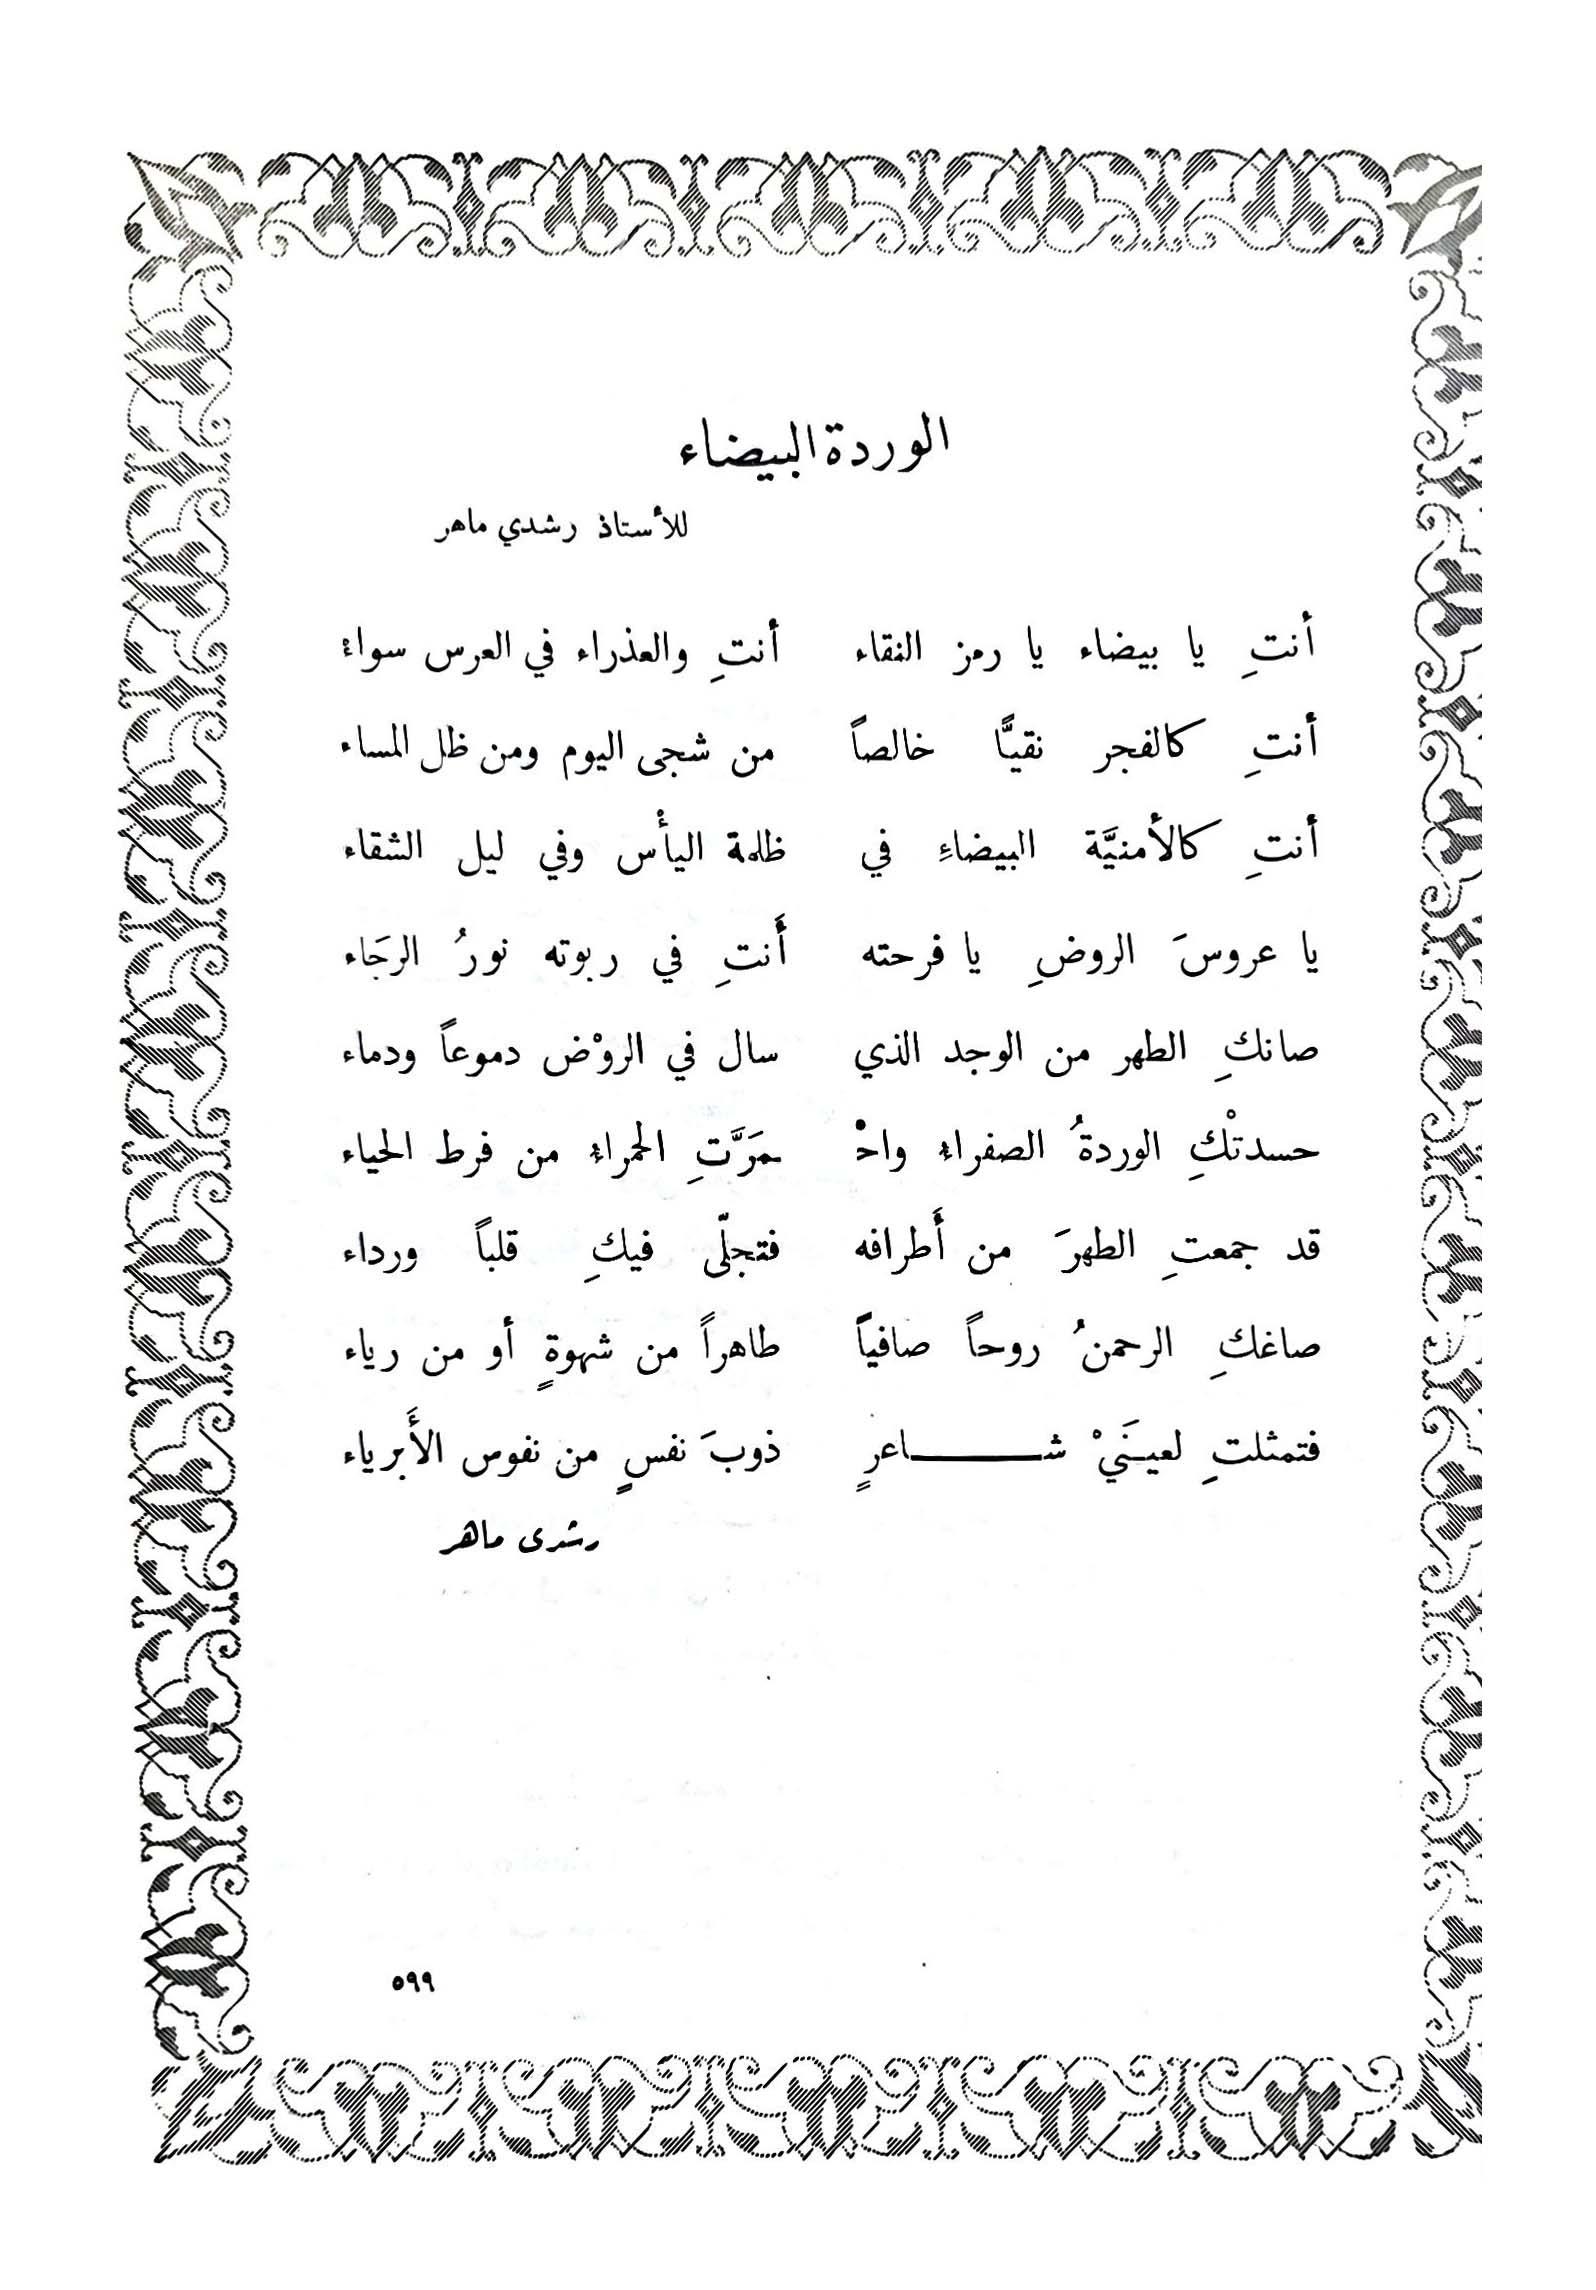 الوردة البيضاء
للأستاذ رشدي ماهر
أنتِ يا بيضاء يا رمز النقاء أنتِ والعذراء في العرس سواءْ
أنتِ كالفجر نقيًّا خالصاً من شجى اليوم ومن ظل المساء
أنتِ كالأمنيَّة البيضاءِ في ظلمة اليأْس وفي ليل الشقاء
يا عروسَ الروضِ يا فرحته أَنتِ في ربوته نورُ الرجَاء
صانكِ الطهر من الوجد الذي سال في الروْض دموعاً ودماء
حسدتْكِ الوردةُ الصفراءُ واحْـ ـمَرَّتِ الحمراءُ من فرط الحياء
قد جمعتِ الطهرَ من أَطرافه فتجلّى فيكِ قلباً ورداء
صاغكِ الرحمنُ روحاً صافياً طاهراً من شهوةٍ أو من رياء
فتمثلتِ لعينَيْ شـــــاعرٍ ذوبَ نفسٍ من نفوس الأَبرياء
رشدى ماهر
٥٩٩